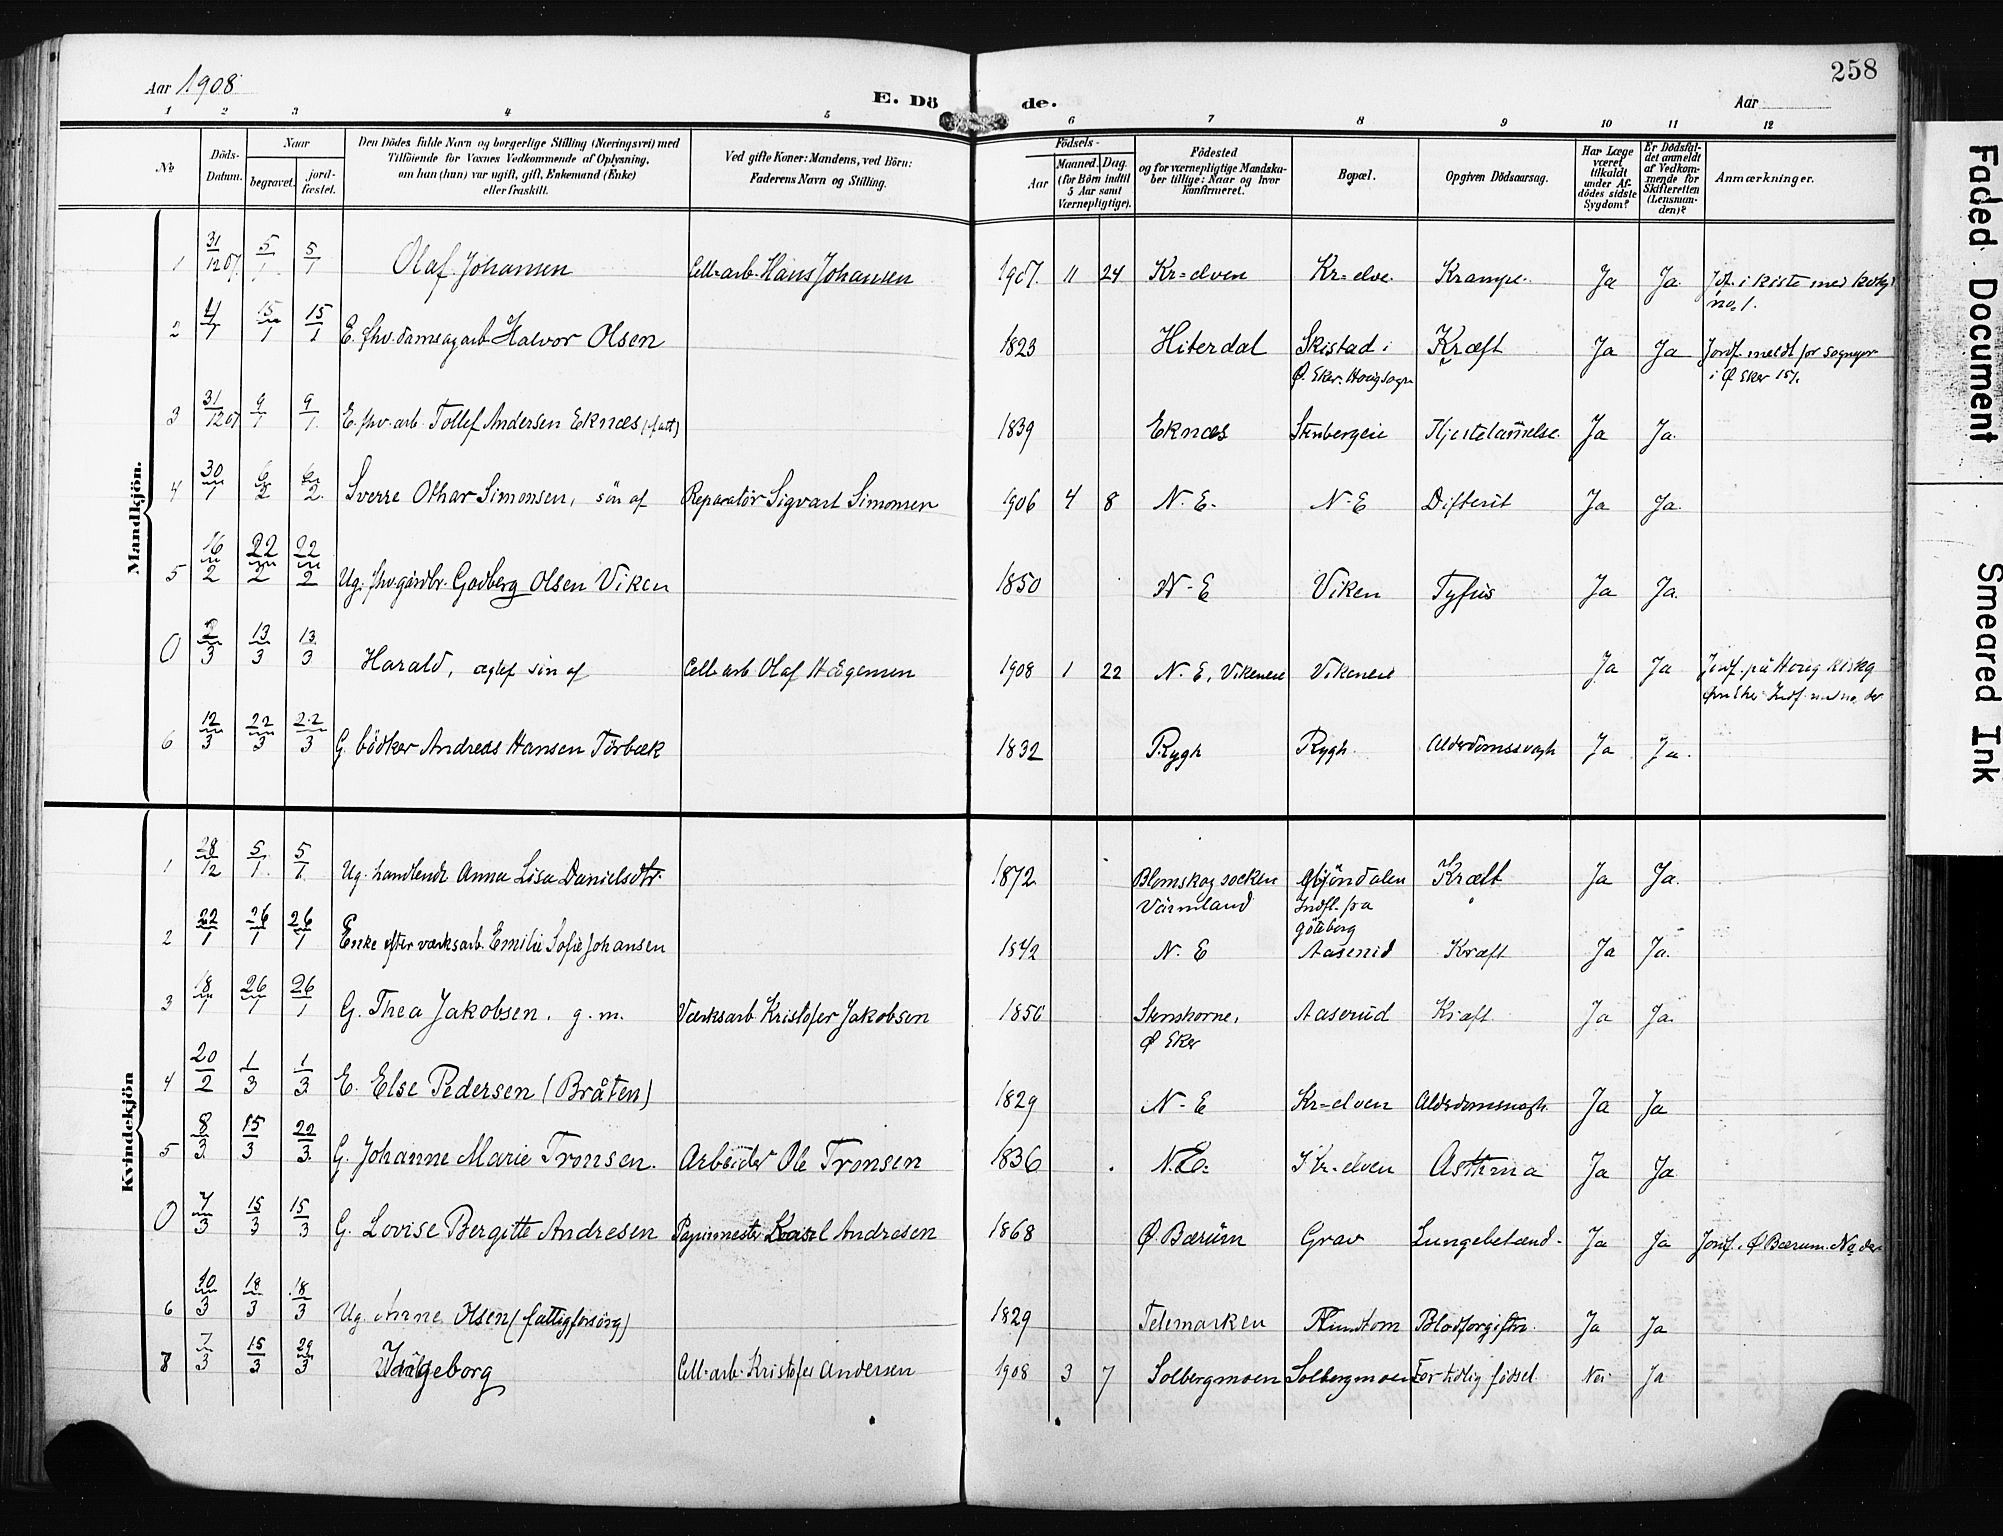 Aar 1908
E. Döde.
258
Aar
1 2 3 4 5 6 7 8 9 10 11 12
No
Döds-Datum.
Naar
begravet.
jord-fæstet.
Den Dödes fulde Navn og borgerlige Stilling (Næringsvei) med
Tilföiende for Voxnes Vedkommende af Oplysning,
om han (hun) var ugift, gift, Enkemand (Enke)
eller fraskilt.
Ved gifte Koner: Mandens, ved Börn:
Faderens Navn og Stilling.
Födsels-
Aar
Maaned. Dag.
(for Börn indtil
5 Aar samt
Værnepligtige).
Födested
og for værnepligtige Mandska-
ber tillige: Naar og hvor
konfirmeret.
Bopæl.
Opgiven Dödsaarsag.
Har Læge
været
tilkaldt
under Af-
dödes sidste
Sygdom?
Er Dödsfal-
det anmeldt
af Vedkom-
mende for
Skifteretten
(Lensman-
den)?
Anmærkninger.
Mandkjön.
1 31/12 07 5/1 5/1 Olaf Johansen Cell-arb. Hans Johansen 1907. 11 24 Kr=elven Kr=elve Krampe. Ja Ja. i kiste med
no. 1.
2 4/1 15/1 15/1 E. fhv. damsagarb Halvor Olsen 1823 Hiterdal Skistad i Kræft Ja Ja Jordf. meldt for sognepr
Ø. Eker. Haugsogn i Ø Eker 15/1.
3 31/12 07 9/1 9/1 E. fhv. arb. Tollef Andersen Eknæs (fatt) 1839 Eknæs Stenbergeie Hjertelammelse. Ja Ja.
4 30/1 6/2 6/2. Sverre Othar Simonsen, sön af Reparatör Sigvart Simonsen 1906 4 8 N. E. N. E Difterit Ja Ja.
5 16/2 22/2 22/2 Ug. fhv. gårdbr. Godberg Olsen Viken 1850 N. E Viken Tyfus Ja Ja.
0 2/3 13/3 13/3 Harald, ægtef sön af Cell arb Olaf Hægensen 1908 1 22 N. E, Vikeneie Vikeneie Ja Ja Jordf. på Haug
6 12/3 22/3 22/3 G. bödker Andreas Hansen Torbæk 1832 Rygh Rygh. Alderdomssvagh Ja Ja.
Kvindekjön
1 28/12 5/1. 5/1. Ug. handlende Anna Lisa Danielsdtr. 1872 Blomskog socken Mjöndalen Kræft Ja Ja.
Värmland Indfl. fra
göteborg
2 22/1 26/1 26/1 Enke efter værksarb. Emilie Sofie Johansen 1842 N. E Aaserud Kræft Ja Ja.
3 18/1 26/1 26/1 G. Thea Jakobsen, g. m. Værksarb. Kristofer Jakobsen 1850 Stenshorne, Aaserud Kræft Ja Ja.
Ø Eker
4 20/2 1/3 1/3 E. Else Pedersen (Bråten) 1829 N. E Kr=elven Alderdomssvagh. Ja Ja
5 8/3 15/3 22/3. G. Johanne Marie Tronsen. Arbeider Ole Tronsen 1836 N. E. Kr=elven Asthma Ja Ja
0 7/3 15/3 15/3 G. Lovise Bergitte Andresen Papirmester Andresen 1868 Ø. Bærum Grav Lungebetænd. Ja Ja Jordf. i Ø Bærum. No der
6 10/3 18/3 18/3 Ug. Anne Olsen (fattigforsörg) 1829 Telemarken Blodforgiftn. Ja Ja
7 7/3 15/3 29/3 Ingeborg Cell-arb. Kristofer Andersen 1908 3 7 Solbergmoen Solbergmoen For tidlig födsel Nei Ja
Faded Document
Smeared Ink